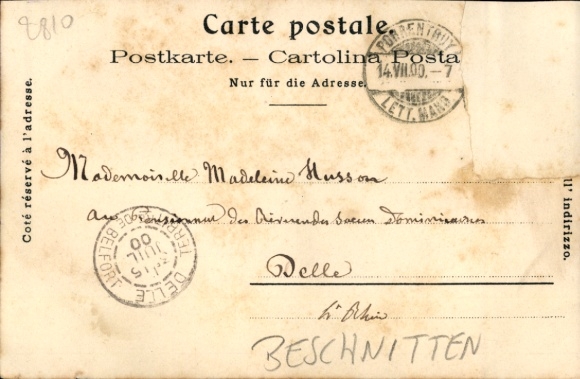 2810
Carte postale.
Postkarte. – Cartolina Posta
Nur für die Adresse.
PORRENTRUY
14.VII.00.–7
LETT. MAND
Coté réservé à l'adresse.
ll' indirizzo.
Mademoiselle Madeleine Husson
au Pensionnat des Révérendes Sœurs Dominicaines
Delle
TERRRE DE BELFORT
15
JUIL
00
DELLE
Ht Rhin
BESCHNITTEN